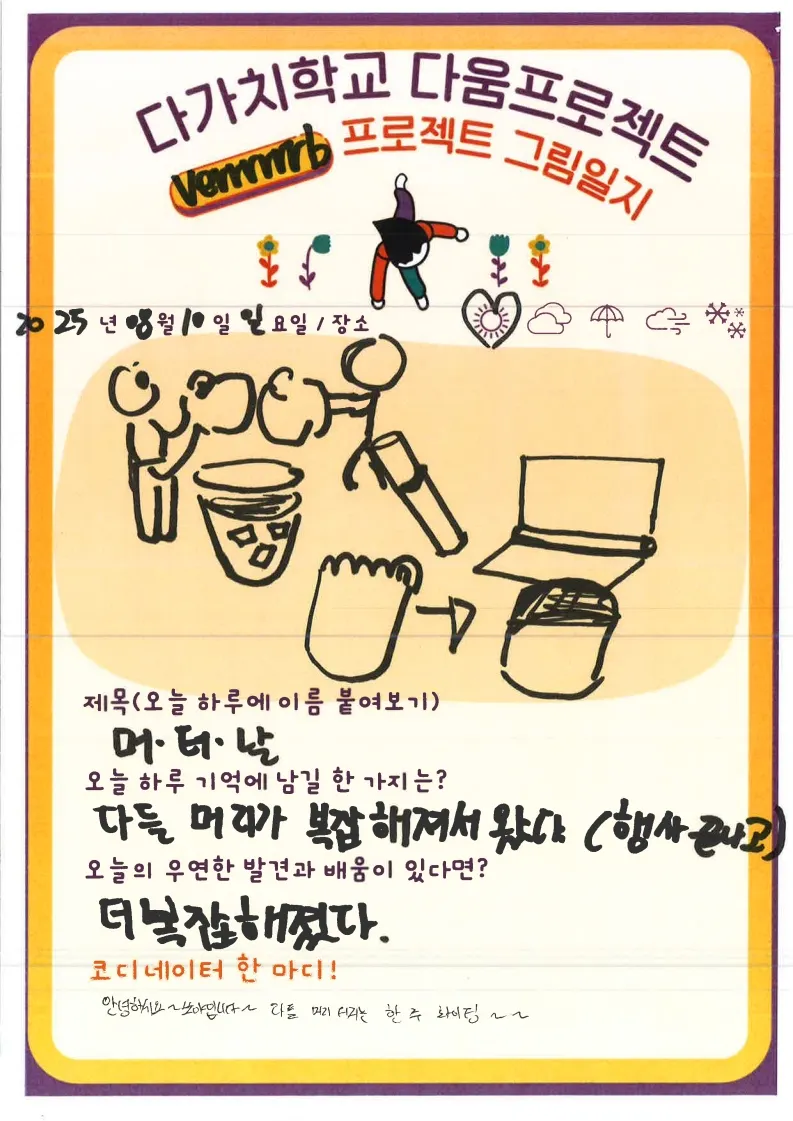 다가치학교 다움프로젝트
프로젝트 그림일지
2025년 08월 10일 일요일 / 장소
제목(오늘 하루에 이름 붙여보기)
머·터·날
오늘 하루 기억에 남길 한 가지는?
다들 머리가 복잡해져서 왔다 (행사 끝나고)
오늘의 우연한 발견과 배움이 있다면?
더 복잡해졌다.
코디네이터 한 마디!
안녕하세요~ 다들 머리 터지는 한 주 화이팅~~